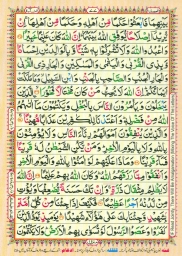 بَيْنِهِمَا فَابْعَثُوْا حَكَمًا مِّنْ اَهْلِهٖ وَحَكَمًا مِّنْ اَهْلِهَا ۚ اِنْ
يُّرِيْدَاۤ اِصْلَاحًا يُّوَفِّقِ اللّٰهُ بَيْنَهُمَا ؕ اِنَّ اللّٰهَ كَانَ عَلِيْمًا خَبِيْرًا
وَاعْبُدُوا اللّٰهَ وَلَا تُشْرِكُوْا بِهٖ شَيْـًٔا وَّبِالْوَالِدَيْنِ اِحْسَانًا
وَّبِذِى الْقُرْبٰى وَالْيَتٰمٰى وَالْمَسٰكِيْنِ وَالْجَارِ ذِى الْقُرْبٰى
وَالْجَارِ الْجُنُبِ وَالصَّاحِبِ بِالْجَنْۢبِ وَابْنِ السَّبِيْلِ ۙ وَمَا
مَلَكَتْ اَيْمَانُكُمْ ؕ اِنَّ اللّٰهَ لَا يُحِبُّ مَنْ كَانَ مُخْتَالًا فَخُوْرًا الَّذِيْنَ
يَبْخَلُوْنَ وَيَاْمُرُوْنَ النَّاسَ بِالْبُخْلِ وَيَكْتُمُوْنَ مَاۤ اٰتٰىهُمُ
اللّٰهُ مِنْ فَضْلِهٖ ؕ وَاَعْتَدْنَا لِلْكٰفِرِيْنَ عَذَابًا مُّهِيْنًا
وَالَّذِيْنَ يُنْفِقُوْنَ اَمْوَالَهُمْ رِئَآءَ النَّاسِ وَلَا يُؤْمِنُوْنَ
بِاللّٰهِ وَلَا بِالْيَوْمِ الْاٰخِرِ ؕ وَمَنْ يَّكُنِ الشَّيْطٰنُ لَهٗ قَرِيْنًا
فَسَآءَ قَرِيْنًا وَمَاذَا عَلَيْهِمْ لَوْ اٰمَنُوْا بِاللّٰهِ وَالْيَوْمِ الْاٰخِرِ
وَاَنْفَقُوْا مِمَّا رَزَقَهُمُ اللّٰهُ ؕ وَكَانَ اللّٰهُ بِهِمْ عَلِيْمًا اِنَّ اللّٰهَ
لَا يَظْلِمُ مِثْقَالَ ذَرَّةٍ ۚ وَاِنْ تَكُ حَسَنَةً يُّضٰعِفْهَا وَيُؤْتِ
مِنْ لَّدُنْهُ اَجْرًا عَظِيْمًا فَكَيْفَ اِذَا جِئْنَا مِنْ كُلِّ اُمَّةٍۭ
بِشَهِيْدٍ وَّجِئْنَا بِكَ عَلٰى هٰٓؤُلَآءِ شَهِيْدًا يَوْمَئِذٍ يَّوَدُّ
الَّذِيْنَ كَفَرُوْا وَعَصَوُا الرَّسُوْلَ لَوْ تُسَوّٰى بِهِمُ الْاَرْضُ ؕ وَلَا